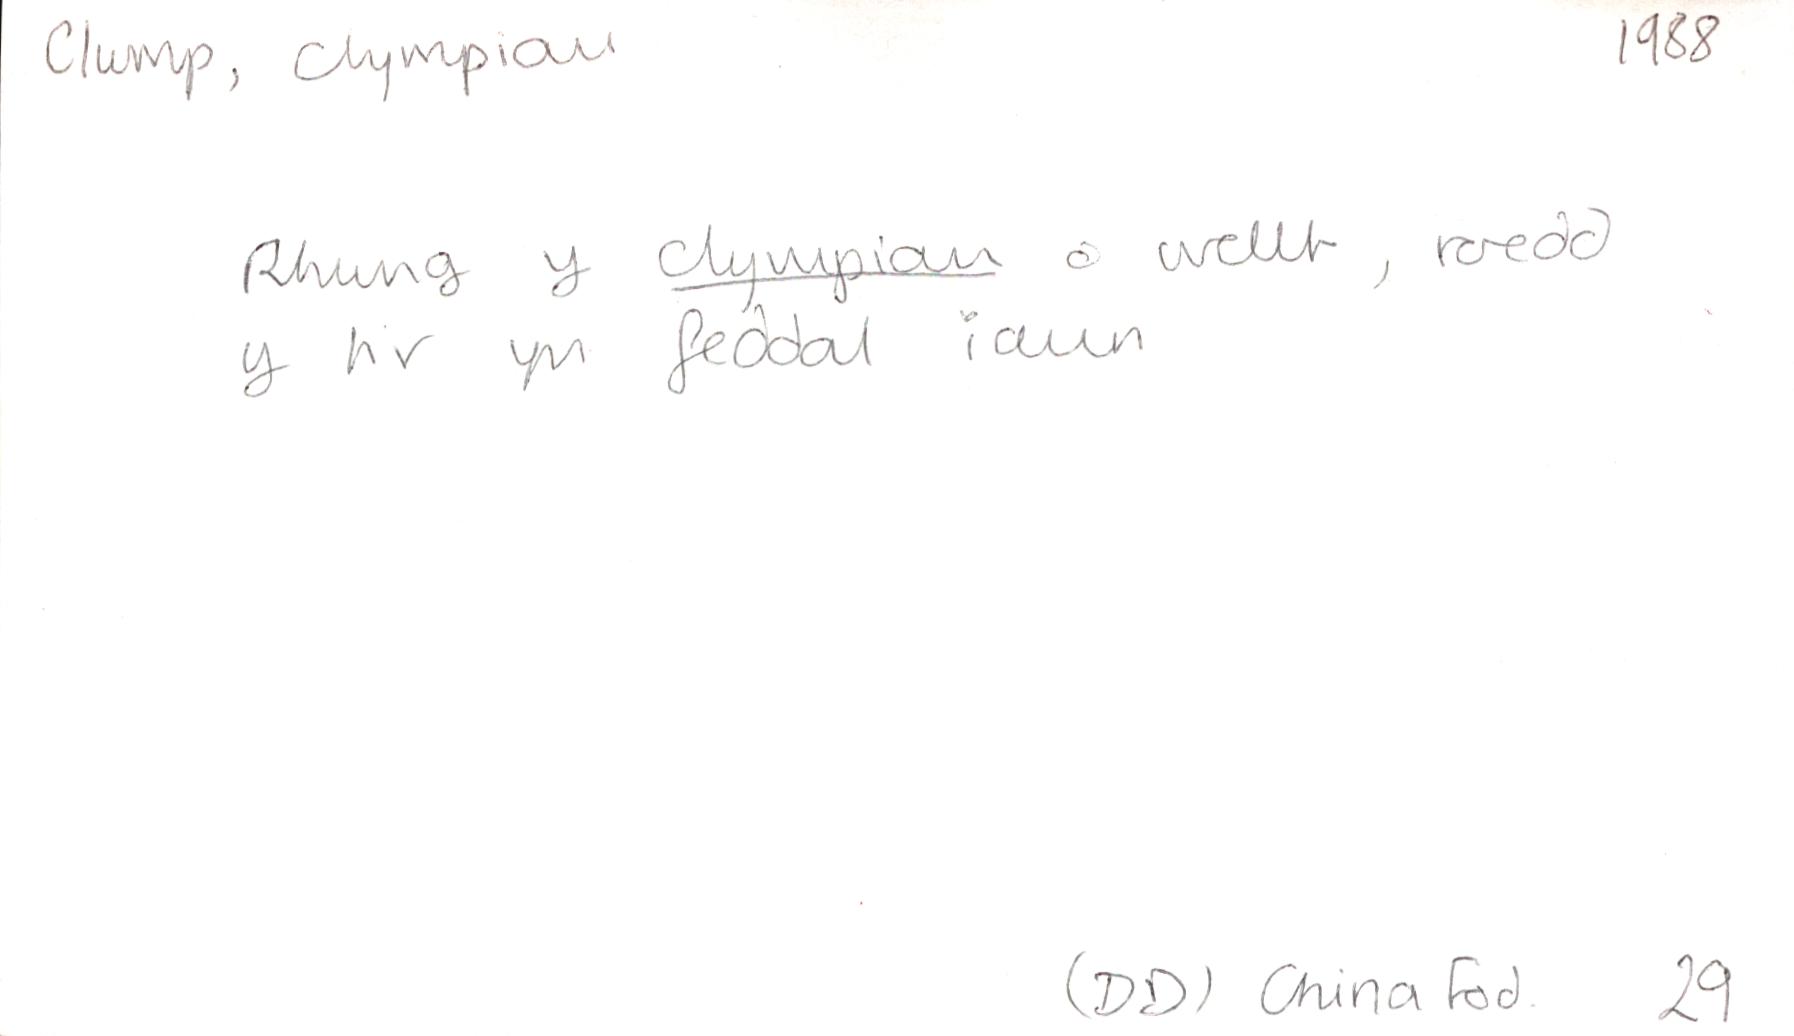 Clump, clympiau 1988
Rhung y clympiau o wellt, roedd
y tir yn feddal iawn
(DD) China Fod. 29